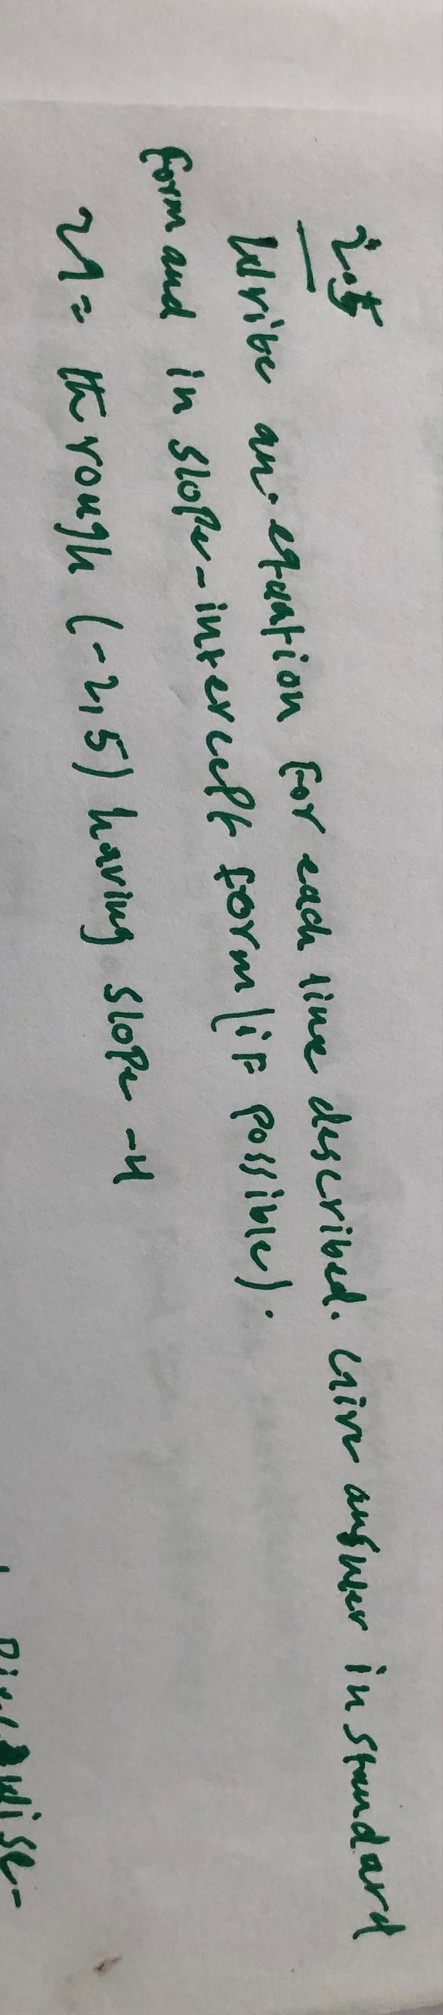 2.5
Write an equation for each line described. Give answer in standard
form and in slope-intercept form (if possible).
21= through (-2,5) having slope -4